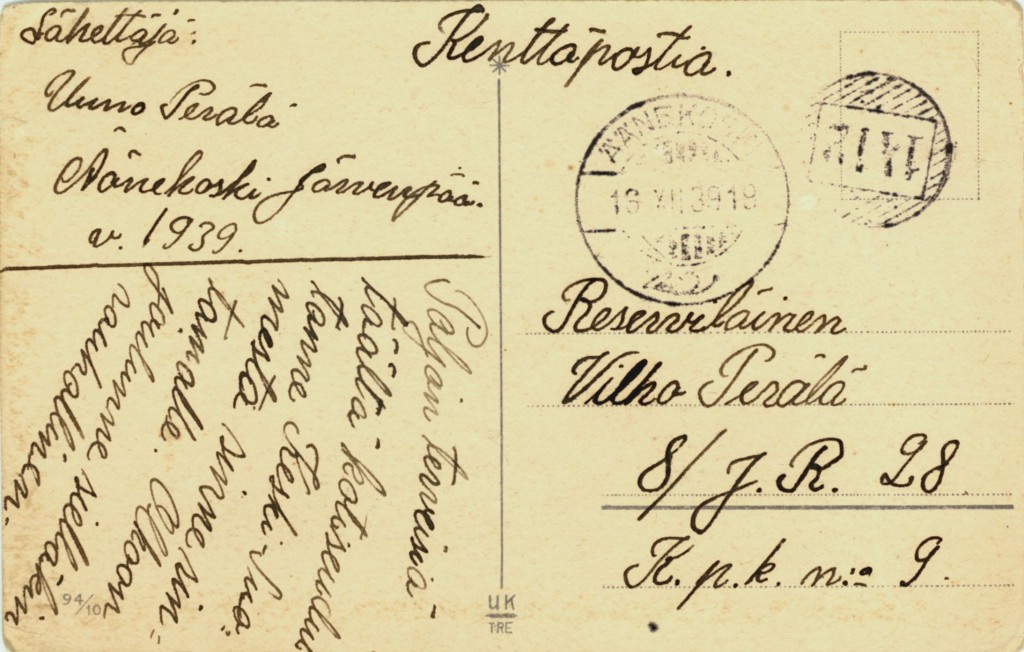 Lähettäjä:
Uuno Perälä
Äänekoski Järvenpää.
v. 1939.
Kenttäpostia.
ÄÄNEKOSKI
16 XII 39 18
Reserviläinen
Vilho Perälä
8/ J. R. 28
K. p. k. n:o 9.
Paljon terveisiä
täältä kotiseudul
tanne Keski-Suo
mesta sinne sin
tamalle. Olkoon
joulunne sielläkin
rauhallinen.
94/10
UK
TRE